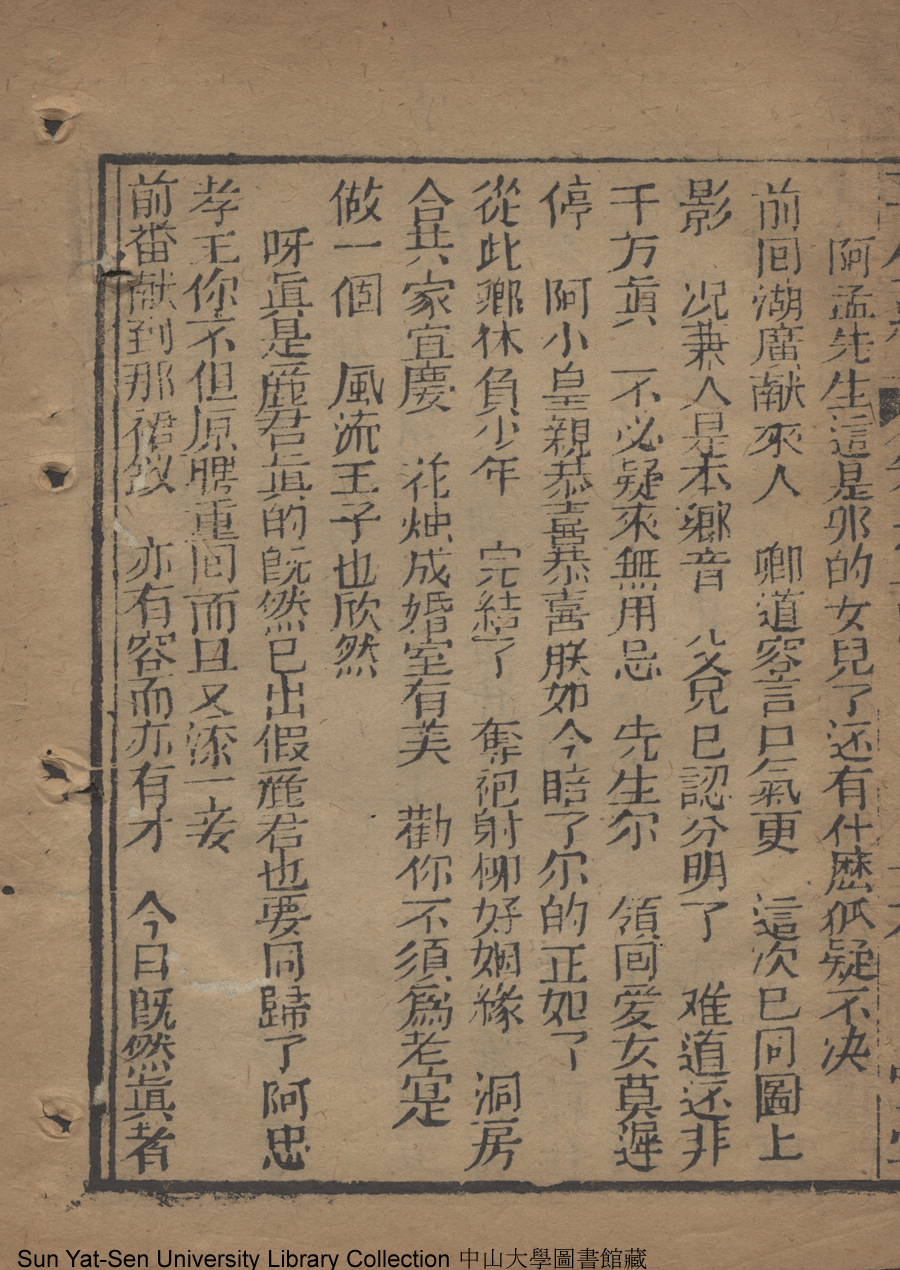 阿孟先生這是你的女兒了还有什麽狐疑不决
前囘湖廣献來人　卿道容言口氣更　這次已同圖上
影　况兼人是本鄉音　父兄已認分明了　难道还非
千万眞　不必疑來無用忌　先生尔　領囘爱女莫遲
停　阿小皇親恭喜恭喜朕如今賠了尔的正如了
從此鄉休負少年　完結了　奪袍射柳好姻緣　洞房
合共家宜慶　花烛成婚室有美　勸你不須爲老寔
做一個　風流王子也欣然
呀眞是麗君眞的既然已出假麗君也要同歸了阿忠
孝王你不但原聘重囘而且又添一妾
前畨献到那裙釵　亦有容而亦有才　今日既然眞者
Sun Yat-Sen University Library Collection 中山大學圖書館藏